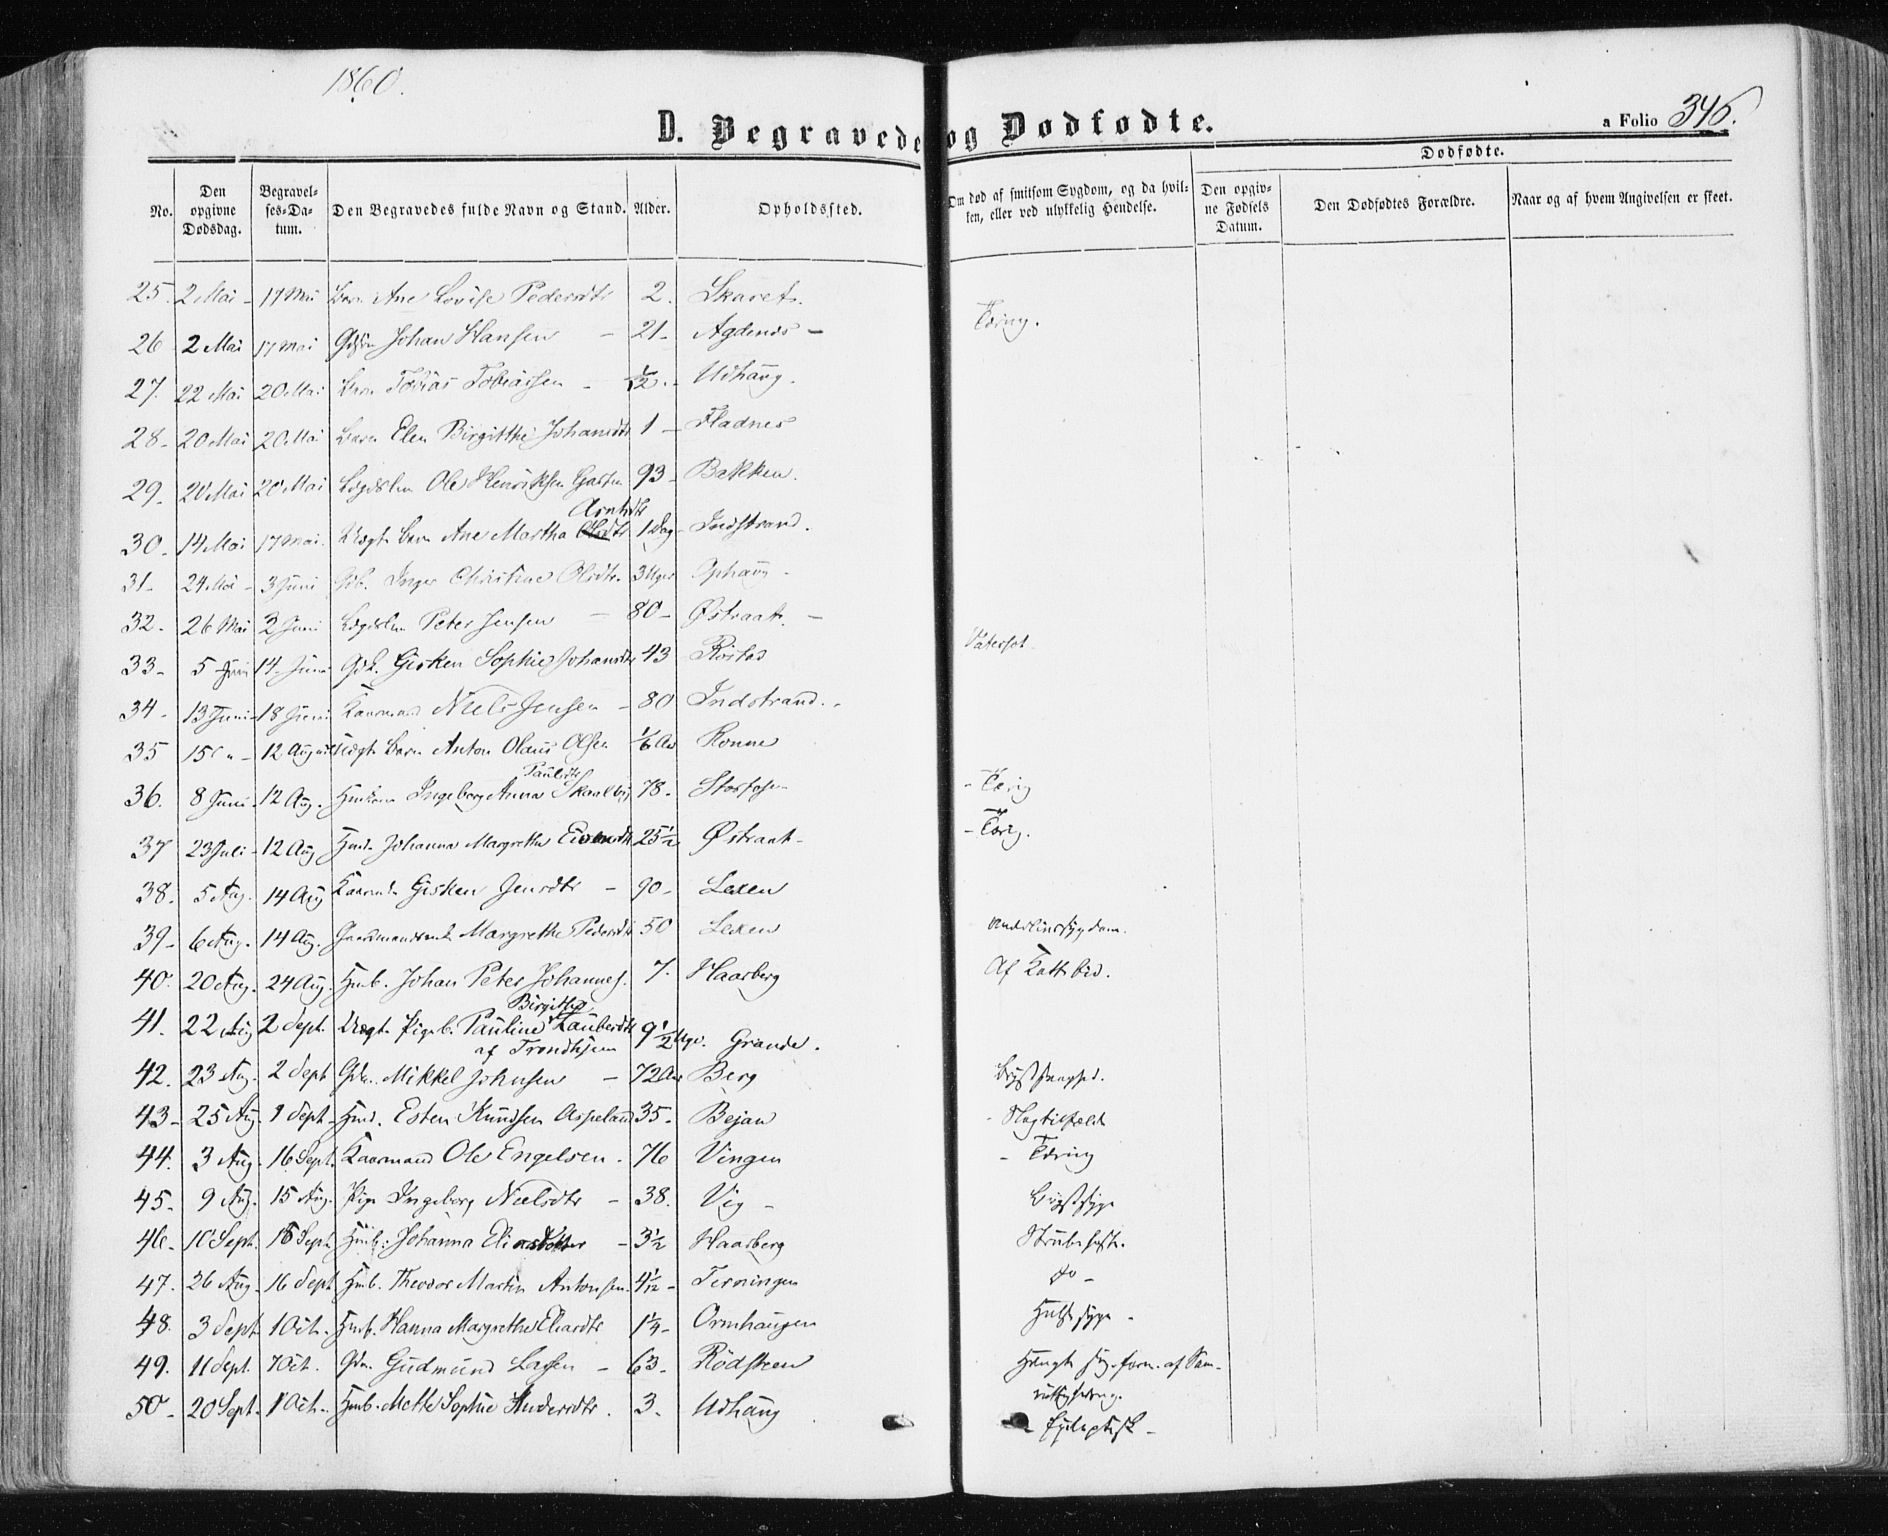 1860.
D. Begravede og Dødfødte.
a Folio 346.
Dødfødte.
No. Den opgivne Dødsdag. Begravelses-Datum. Den Begravedes fulde Navn og Stand. Alder. Opholdssted. Om død af smitsom Sygdom, og da hvilken, eller ved ulykkelig Hendelse. Den opgivne Fødsels Datum. Den Dødfødtes Forældre. Naar og af hvem Angivelsen er skeet.
25. 2 Mai - 17 Mai Barn Ane Lovise Pedersdtr 2. Skaret.
26 2 Mai 17 Mai Johan Hansen - 21 - Agdenes - Tæring.
27. 22 Mai 20 Mai Barn Tobias Tobiassen - 1/2 - Udhaug.
28 - 20 Mai 20 Mai Barn Elen Birgitthe Johansdtr 1 - Fladnes
29 - 20 Mai 20 Mai Lægdslm Ole Henriksen 93 - Bakken.
Arntdtr
30 - 14 Mai 17 Mai. Uægt. Barn Ane Martha Olsdtr 1 Dag - Indstrand.
31 - 24 Mai - 3 Juni Gdb. Inger Christine Olsdtr. 3 Uger Ophaug -
32 - 26 Mai 3 Juni Lægdslm Peter Jensen - 80 - Østraat. -
33 - 5 Juni 14 Juni Gdk. Gisken Sophie Johansdtr 43 Røstad Vatersot
34 - 13 Juni - 18 Juni Kaarmand Niels Jensen - 80 Indstrand.
35 15 " - 12 August Uægt. Barn Anton Olaus Olsen 1/6 Aar Rønne
Paulsdtr
36. 8 Juni - 12 Aug. Ingeborg Anna Skaelvig 78 - Storfosen - Tæring
37 23 Juli - 12 Aug Johanna Margrethe 25 1/2 Østraat - - Tæring.
38. 5 Aug. 14 Aug Gisken Jensdtr - 90 - Lexen
39 - 6 Aug. 14 Aug. Margrethe Pedersdtr 50 Lexen Underlivssygdom.
40. 20 Aug. 24 Aug. Hmb. Johan Peter Johannes. 7. Haarberg Af Kattebid.
Birgitha
41. 22 Aug 2 Sept. Uægt. Pigeb. Pauline Laubersdtr 9 1/2 Uger. Grande.
af Trondhjem
42. 23 Aug. 2 Sept Gdm. Mikkel Johnsen - 72 Aar Berg
43 - 25 Aug. 9 Sept. Hmd. Esten Knudsen Aspeland 35 - Bejan - Slagtilfælde
44. 3 Aug. 16 Sept. Kaarmand Ole Engelsen. 76 Vingen - Tæring
45 - 9 Aug. 15 Aug. Pige Ingeborg Nielsdtr - 38. Vig - Brystsyge
46 - 10 Sept. 16 Sept. Hmb. Johanna Eliasdatter - 3 1/2 Haarberg Strubehoste.
47. 26 Aug. 16 Sept Hmb. Theodor Martin Antonsen. 4 1/12 - Terningen do -
48. 3 Sept 1 Oct. Hmb. Hanna Margrethe Eliasdtr 1 1/4 - Ormhaugen Halssyge -
49. 11 Sept. 7 Oct. Gdm. Gudmund Lassen - 63 - Rødsteen
50 - 20 Sept. 1 Oct. Hmb. Mette Sophie Andersdtr. 3. Udhaug
- Epileptisk -